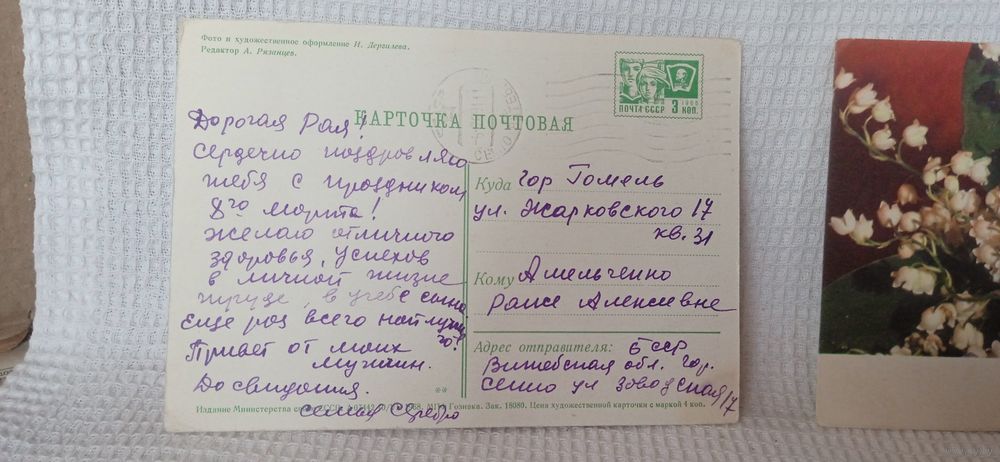 Фото и художественное оформление И. Дергилева.
Редактор А. Рязанцев.
ПОЧТА СССР 3 коп.
1966
КАРТОЧКА ПОЧТОВАЯ
Дорогая Рая!
Сердечно поздравляю
тебя с праздником
8го марта!
Желаю отличного
здоровья, успехов
в личной жизни
труде, в учебе сына
Еще раз всего найлучше
го!
Привет от моих
мужчин.
До свидания.
семья Серебро
Куда гор Гомель
ул. Жарковского 17
кв. 31
Кому Амельченко
Раисе Алексевне
Адрес отправителя: БССР
Витебская обл. гор.
Сенно ул Заводская 17
**
Издание Министерства связи СССР. 1968. МПФ Гознака. Зак. 18080. Цена художественной карточки с маркой 4 коп.